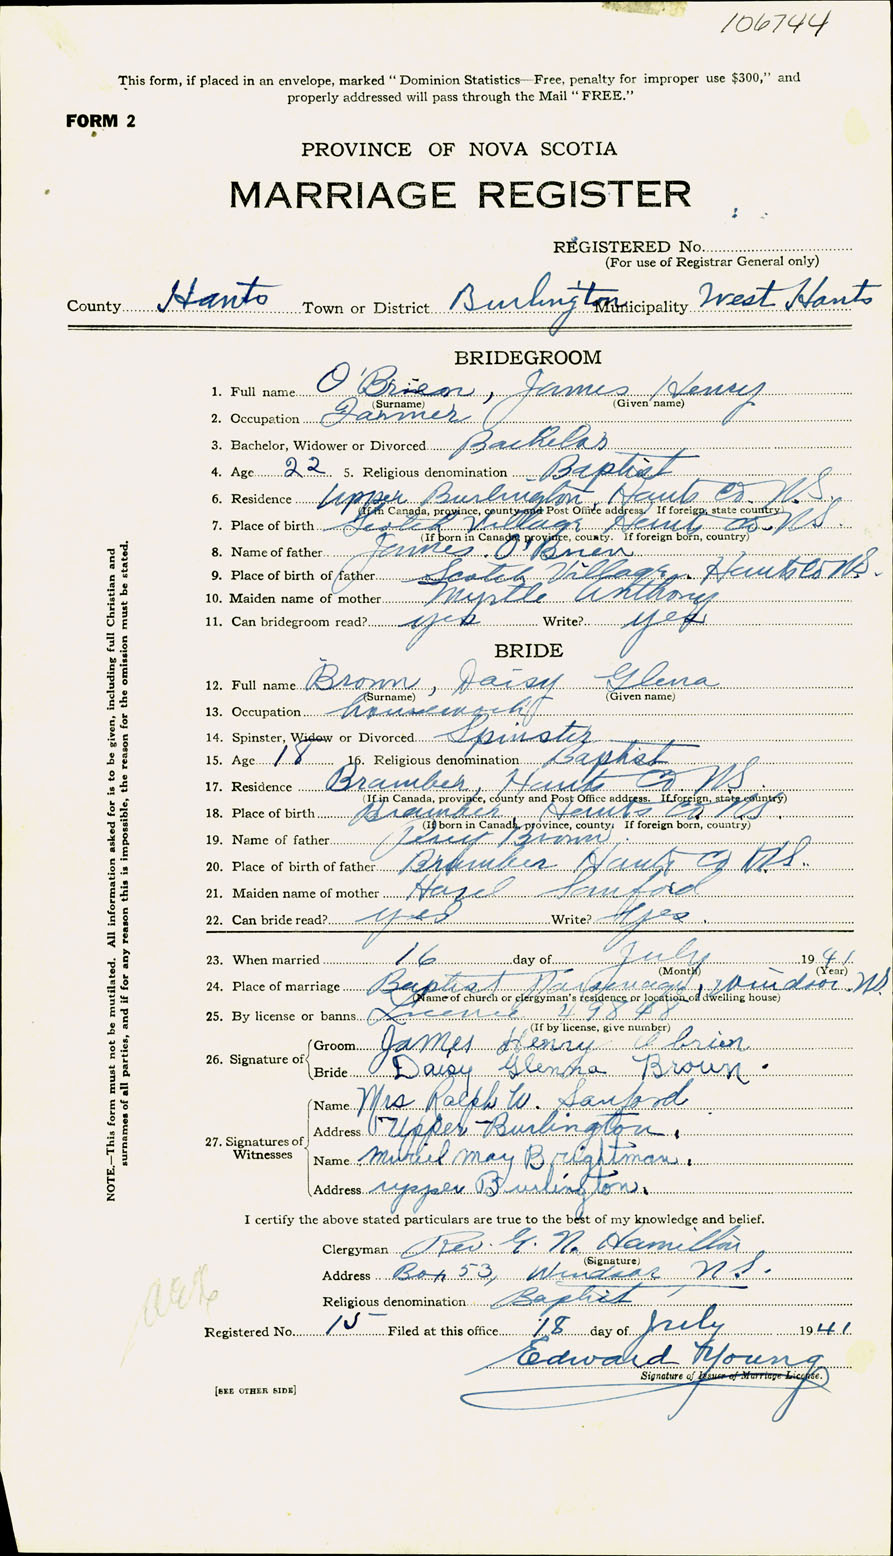 106744
This form, if placed in an envelope, marked "Dominion Statistics—Free, penalty for improper use $300," and
properly addressed will pass through the Mail "FREE."
FORM 2
PROVINCE OF NOVA SCOTIA
MARRIAGE REGISTER
REGISTERED No.
(For use of Registrar General only)
County Hants Town or District Burlington Municipality West Hants
BRIDEGROOM
1. Full name O'Brien, James Henry
(Surname) (Given name)
2. Occupation Farmer
3. Bachelor, Widower or Divorced Bachelor
4. Age 22 5. Religious denomination Baptist
6. Residence Upper Burlington, Hants Co. N.S.
(If in Canada, province, county and Post Office address. If foreign, state country)
7. Place of birth Scotch Village Hants Co. NS
(If born in Canada, province, county. If foreign born, country)
8. Name of father James O'Brien
9. Place of birth of father Scotch Village, Hants Co N.S.
10. Maiden name of mother Myrtle Anthony
11. Can bridegroom read? yes Write? yes
BRIDE
12. Full name Brown, Daisy Glena
(Surname) (Given name)
13. Occupation housework
14. Spinster, Widow or Divorced Spinster
15. Age 18 16. Religious denomination Baptist
17. Residence Bramber, Hants Co NS.
(If in Canada, province, county and Post Office address. If foreign, state country)
18. Place of birth Bramber Hants Co. N.S.
(If born in Canada, province, county. If foreign born, country)
19. Name of father Brown
20. Place of birth of father Bramber Hants Co N.S.
21. Maiden name of mother Hazel Sanford
22. Can bride read? yes Write? yes.
23. When married 16 day of July 1941
(Month) (Year)
24. Place of marriage Baptist Parsonage, Windsor NS.
(Name of church or clergyman's residence or location of dwelling house)
25. By license or banns License 49848
(If by license, give number)
26. Signature of
Groom James Henry Obrien
Bride Daisy Glenna Brown.
27. Signatures of Witnesses
Name Mrs Ralph W. Sanford
Address Upper Burlington.
Name Muriel May Brightman.
Address upper Burlington.
I certify the above stated particulars are true to the best of my knowledge and belief.
Clergyman Rev. G. N. Hamilton
(Signature)
Address Box 53, Windsor N.S.
Religious denomination Baptist
Registered No. 15 Filed at this office 18 day of July 1941
Edward Young
Signature of Issuer of Marriage License.
[SEE OTHER SIDE]
NOTE.—This form must not be mutilated. All information asked for is to be given, including full Christian and
surnames of all parties, and if for any reason this is impossible, the reason for the omission must be stated.